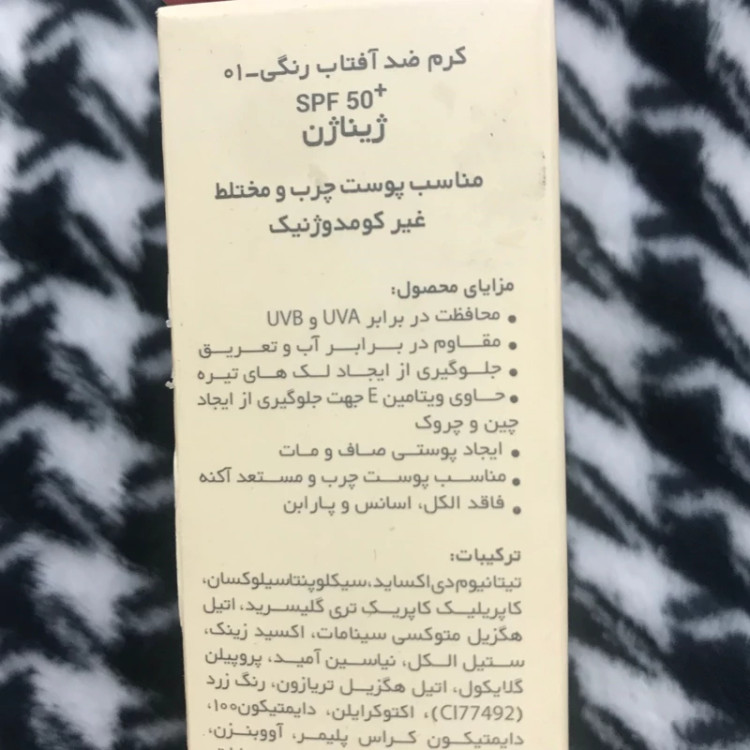 کرم ضد آفتاب رنگی-۰۱
SPF 50+
ژیناژن
مناسب پوست چرب و مختلط
غیر کومدوژنیک
مزایای محصول:
• محافظت در برابر UVA و UVB
• مقاوم در برابر آب و تعریق
• جلوگیری از ایجاد لک های تیره
• حاوی ویتامین E جهت جلوگیری از ایجاد
چین و چروک
• ایجاد پوستی صاف و مات
• مناسب پوست چرب و مستعد آکنه
• فاقد الکل، اسانس و پارابن
ترکیبات:
تیتانیوم دی اکساید، سیکلوپنتاسیلوکسان،
کاپریلیک کاپریک تری گلیسرید، اتیل
هگزیل متوکسی سینامات، اکسید زینک،
ستیل الکل، نیاسین آمید، پروپیلن
گلایکول، اتیل هگزیل تریازون، رنگ زرد
(CI77492)، اکتوکرایلن، دایمتیکون۱۰۰،
دایمتیکون کراس پلیمر، آووبنزن،